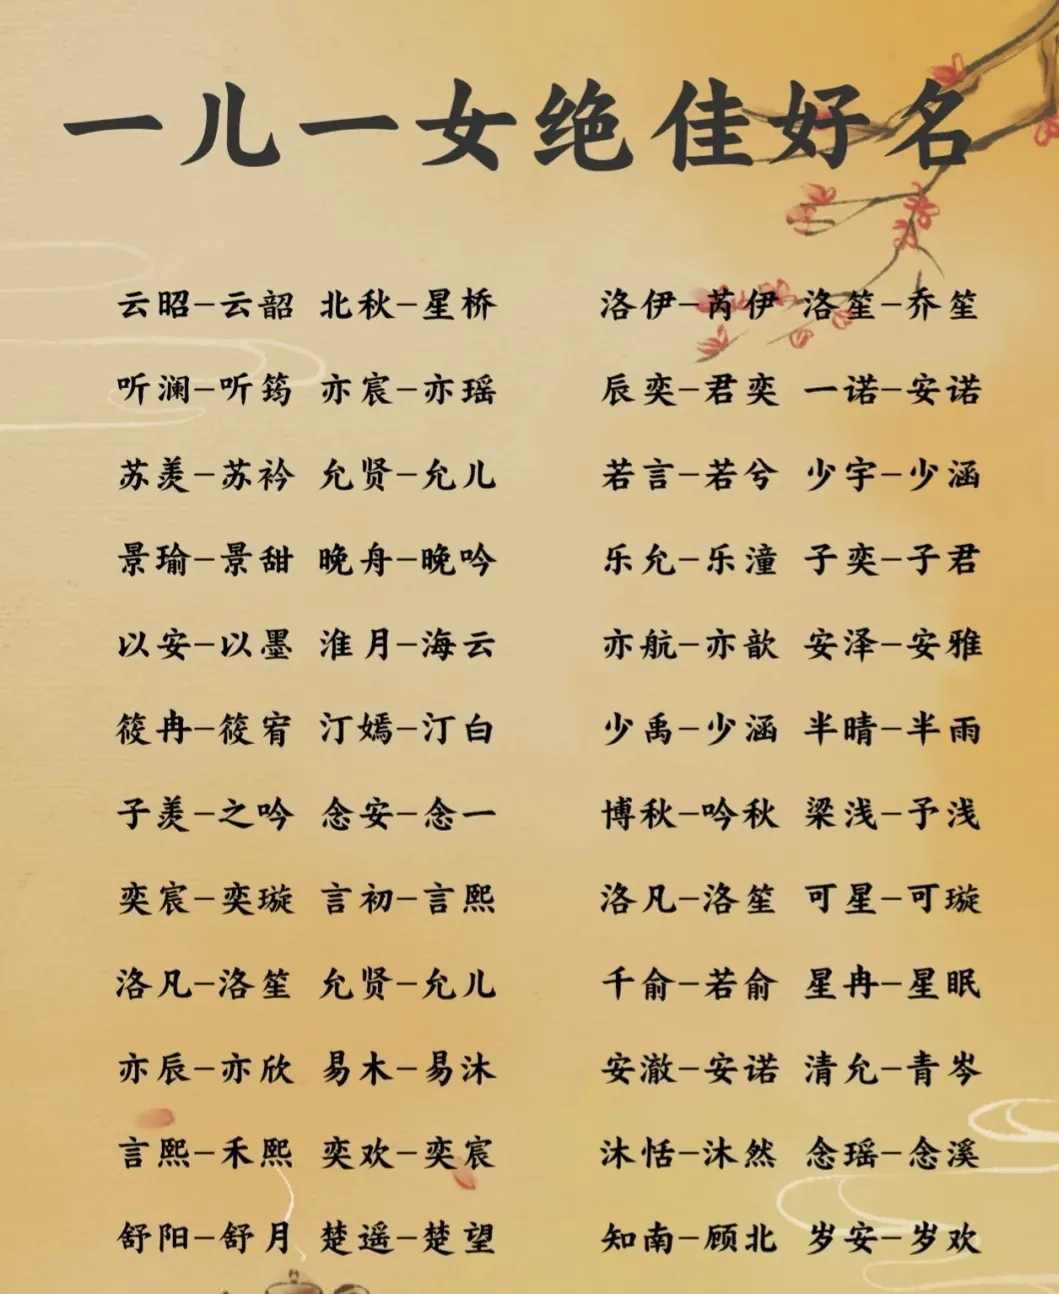 一儿一女绝佳好名
云昭-云韶 北秋-星桥 洛伊-芮伊 洛笙-乔笙
听澜-听筠 亦宸-亦瑶 辰奕-君奕 一诺-安诺
苏羡-苏衿 允贤-允儿 若言-若兮 少宇-少涵
景瑜-景甜 晚舟-晚吟 乐允-乐潼 子奕-子君
以安-以墨 淮月-海云 亦航-亦歆 安泽-安雅
筱冉-筱宥 汀嫣-汀白 少禹-少涵 半晴-半雨
子羡-之吟 念安-念一 博秋-吟秋 梁浅-予浅
奕宸-奕璇 言初-言熙 洛凡-洛笙 可星-可璇
洛凡-洛笙 允贤-允儿 千俞-若俞 星冉-星眠
亦辰-亦欣 易木-易沐 安澈-安诺 清允-青岑
言熙-禾熙 奕欢-奕宸 沐恬-沐然 念瑶-念溪
舒阳-舒月 楚遥-楚望 知南-顾北 岁安-岁欢